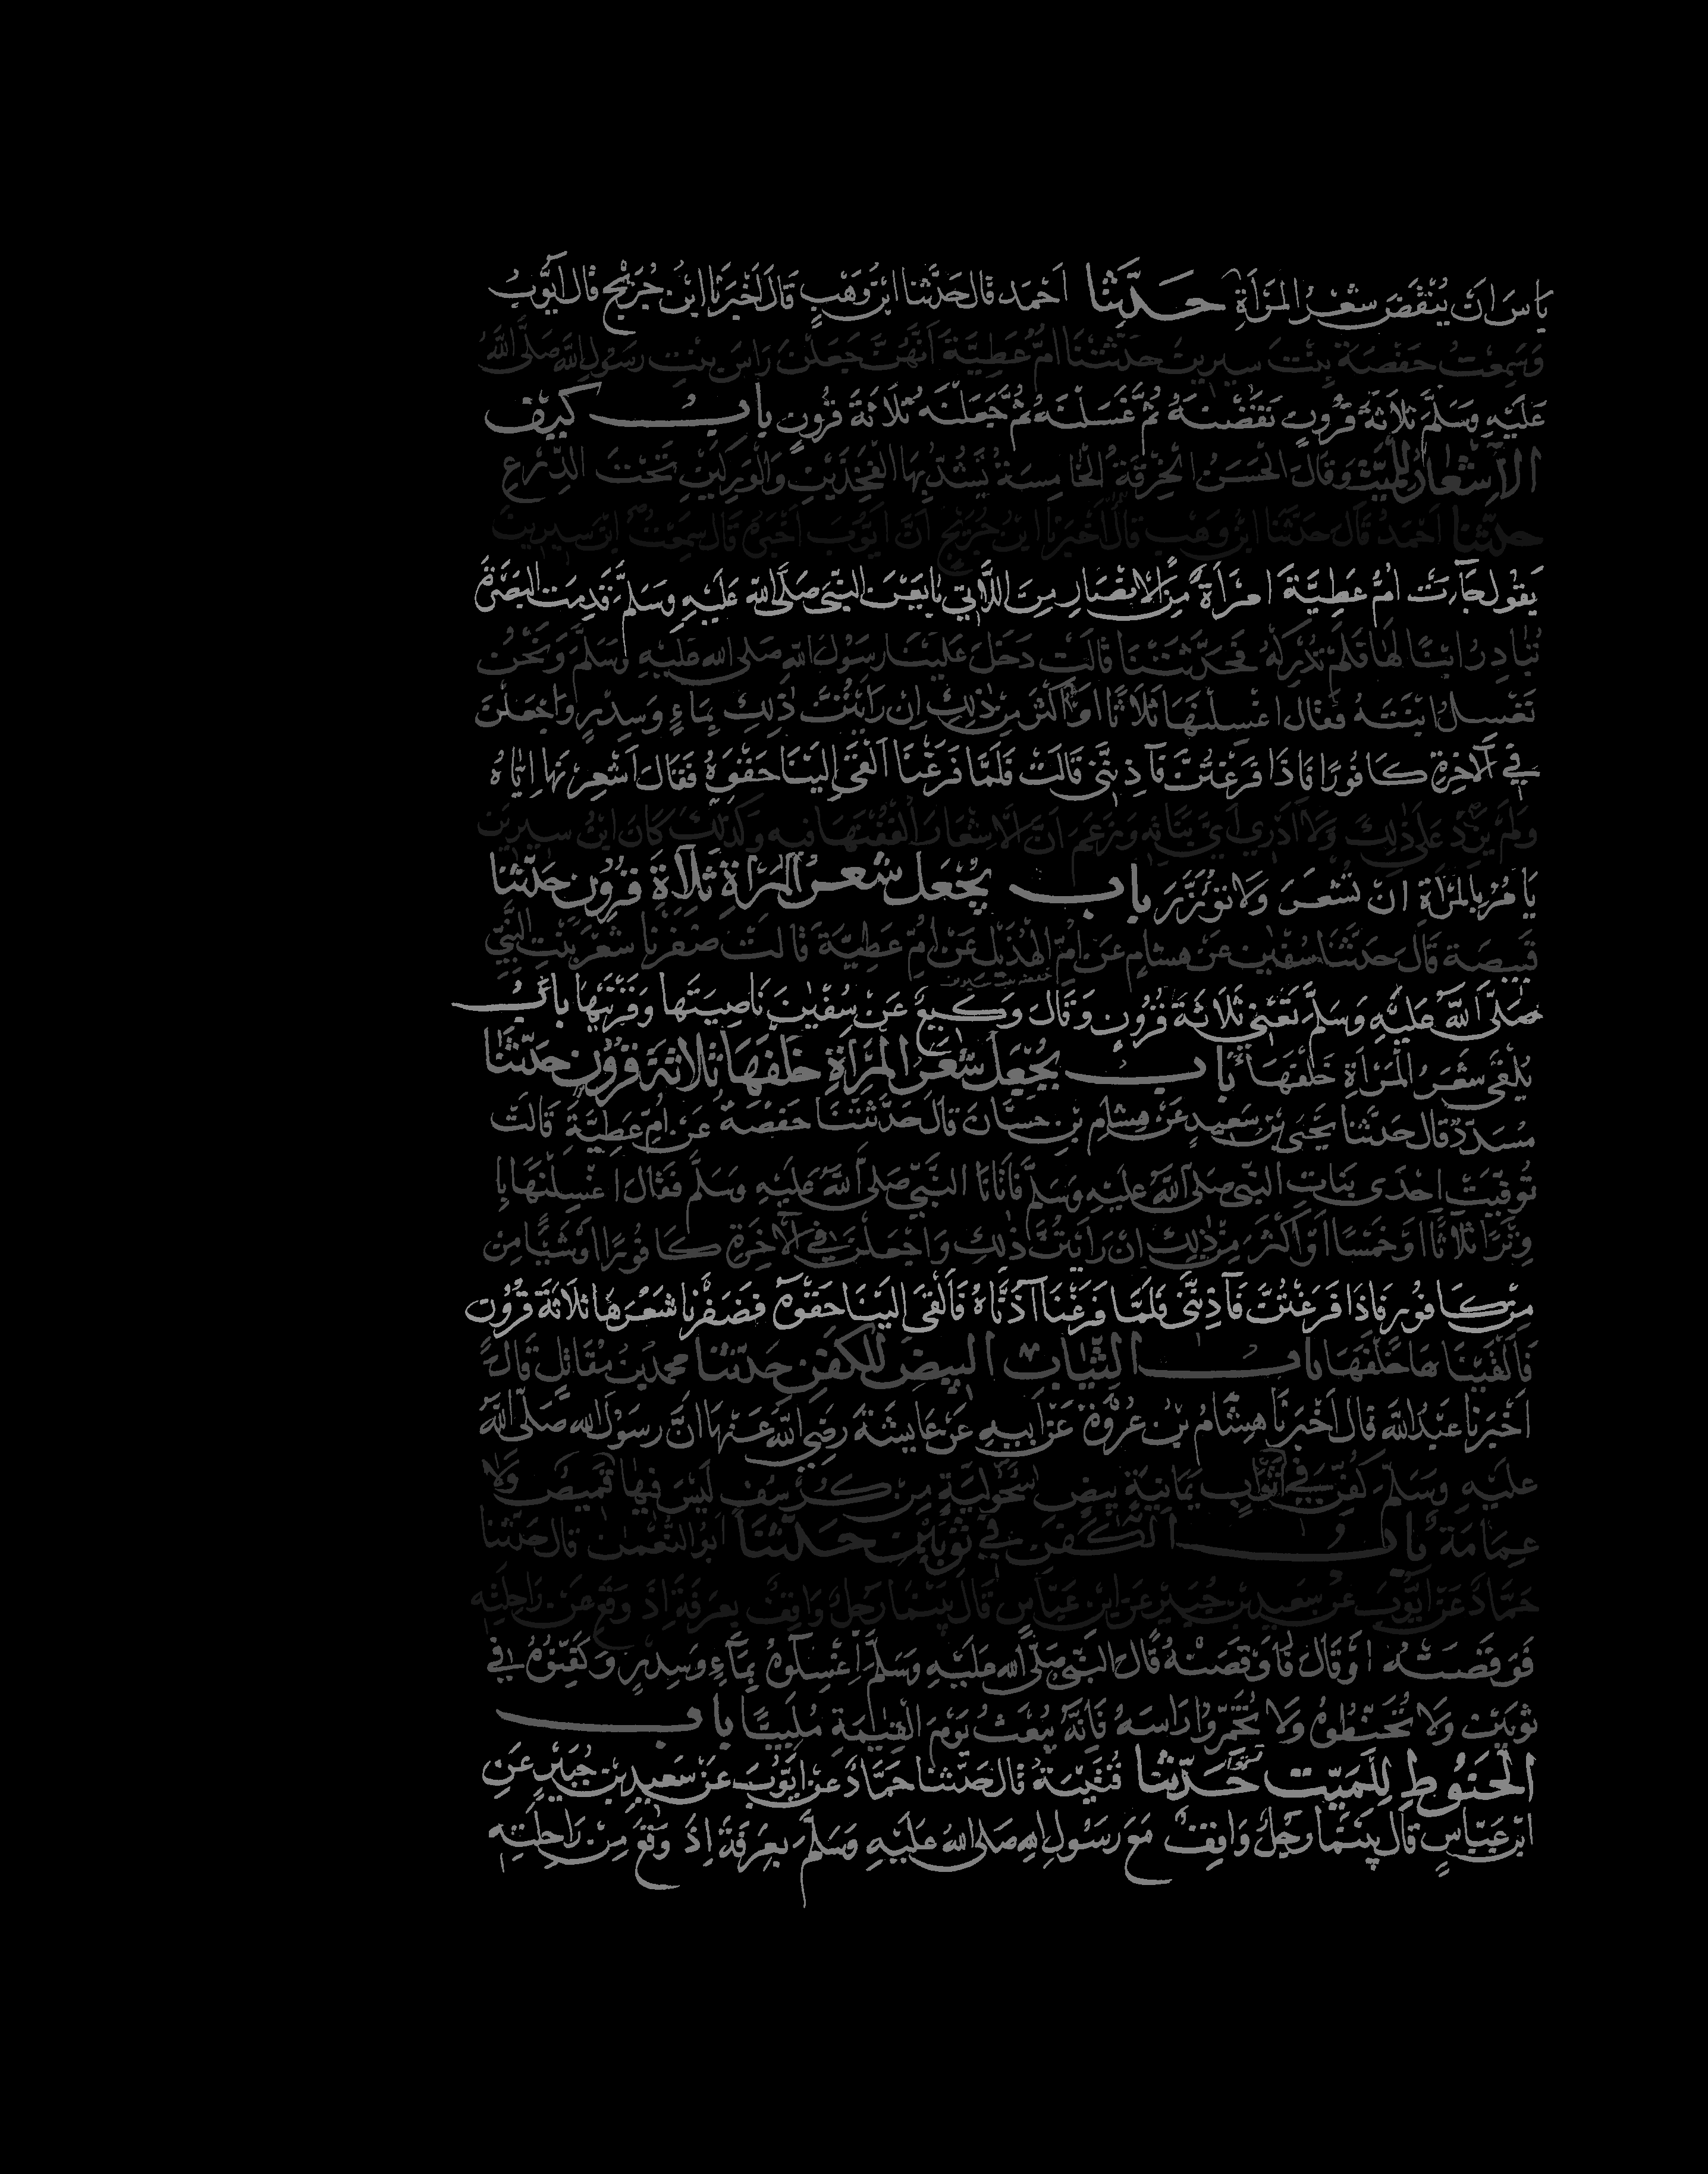 باس ان ينقض شعر المراة حدثنا احمد قال حدثنا ابن وهب قال اخبرنا ابن جريج قال ايوب
وسمعت حفصة بنت سيرين حدثتنا ام عطية انهن جعلن راس بنت رسول الله صلى الله
عليه وسلم ثلاثة قرون نقضنه ثم غسلنه ثم جعلنه ثلاثة قرون باب كيف
الاشعار للميت وقال الحسن الخرقة الخامسة يشد بها الفخذين والوركين تحت الدرع
حدثنا احمد قال حدثنا ابن وهب قال اخبرنا ابن جريج ان ايوب اخبره قال سمعت ابن سيرين
يقول جاءت ام عطية امراة من الانصار من اللاتي بايعن النبي صلى الله عليه وسلم قدمت البصرة
تبادر ابنا لها فلم تدركه فحدثتنا قالت دخل علينا رسول الله صلى الله عليه وسلم ونحن
نغسل ابنته فقال اغسلنها ثلاثا او اكثر من ذلك ان رايتن ذلك بماء وسدر واجعلن
في الاخرة كافورا فاذا فرغتن فاذنني قالت فلما فرغنا القى الينا حقوه فقال اشعرنها اياه
ولم يزد على ذلك ولا ادري اي بناته وزعم ان الاشعار الففنها فيه وكذلك كان ابن سيرين
يامر بالمراة ان تشعر ولا توزر باب يجعل شعر المراة ثلاثة قرون حدثنا
قبيصة قال حدثنا سفين عن هشام عن ام الهذيل عن ام عطية قالت ضفرنا شعر بنت النبي
صلى الله عليه وسلم تعني ثلاثة قرون وقال وكيع عن سفين ناصيتها وقرنيها باب
يلقى شعر المراة خلفها باب يجعل شعر المراة خلفها ثلاثة قرون حدثنا
مسدد قال حدثنا يحيى بن سعيد عن هشام بن حسان قال حدثتنا حفصة عن ام عطية قالت
توفيت احدى بنات النبي صلى الله عليه وسلم فاتانا النبي صلى الله عليه وسلم فقال اغسلنها با
وترا ثلاثا او خمسا او اكثر من ذلك ان رايتن ذلك واجعلن في الاخرة كافورا او شيا من
من كافور فاذا فرغتن فاذنني فلما فرغنا آذناه فالقى الينا حقوه فضفرنا شعرها ثلاثة قرون
فالقيناها خلفها باب الثياب البيض للكفن حدثنا محمد بن مقاتل قال
اخبرنا عبد الله قال اخبرنا هشام بن عروة عن ابيه عن عايشة رضي الله عنها ان رسول الله صلى الله
عليه وسلم كفن في اثواب يمانية بيض سحولية من كرسف ليس فيها قميص ولا
عمامة باب الكفن في ثوبين حدثنا ابو النعمان قال حدثنا
حماد عن ايوب عن سعيد بن جبير عن ابن عباس قال بينما رجل واقف بعرفة اذ وقع عن راحلته
فوقصته او قال فاوقصته قال النبي صلى الله عليه وسلم اغسلوه بماء وسدر وكفنوه في
ثوبين ولا تحنطوه ولا تخمروا راسه فانه يبعث يوم القيمة ملبيا باب
الحنوط للميت حدثنا قتيبة قال حدثنا حماد عن ايوب عن سعيد بن جبير عن
ابن عباس قال بينما رجل واقف مع رسول الله صلى الله عليه وسلم بعرفة اذ وقع من راحلته